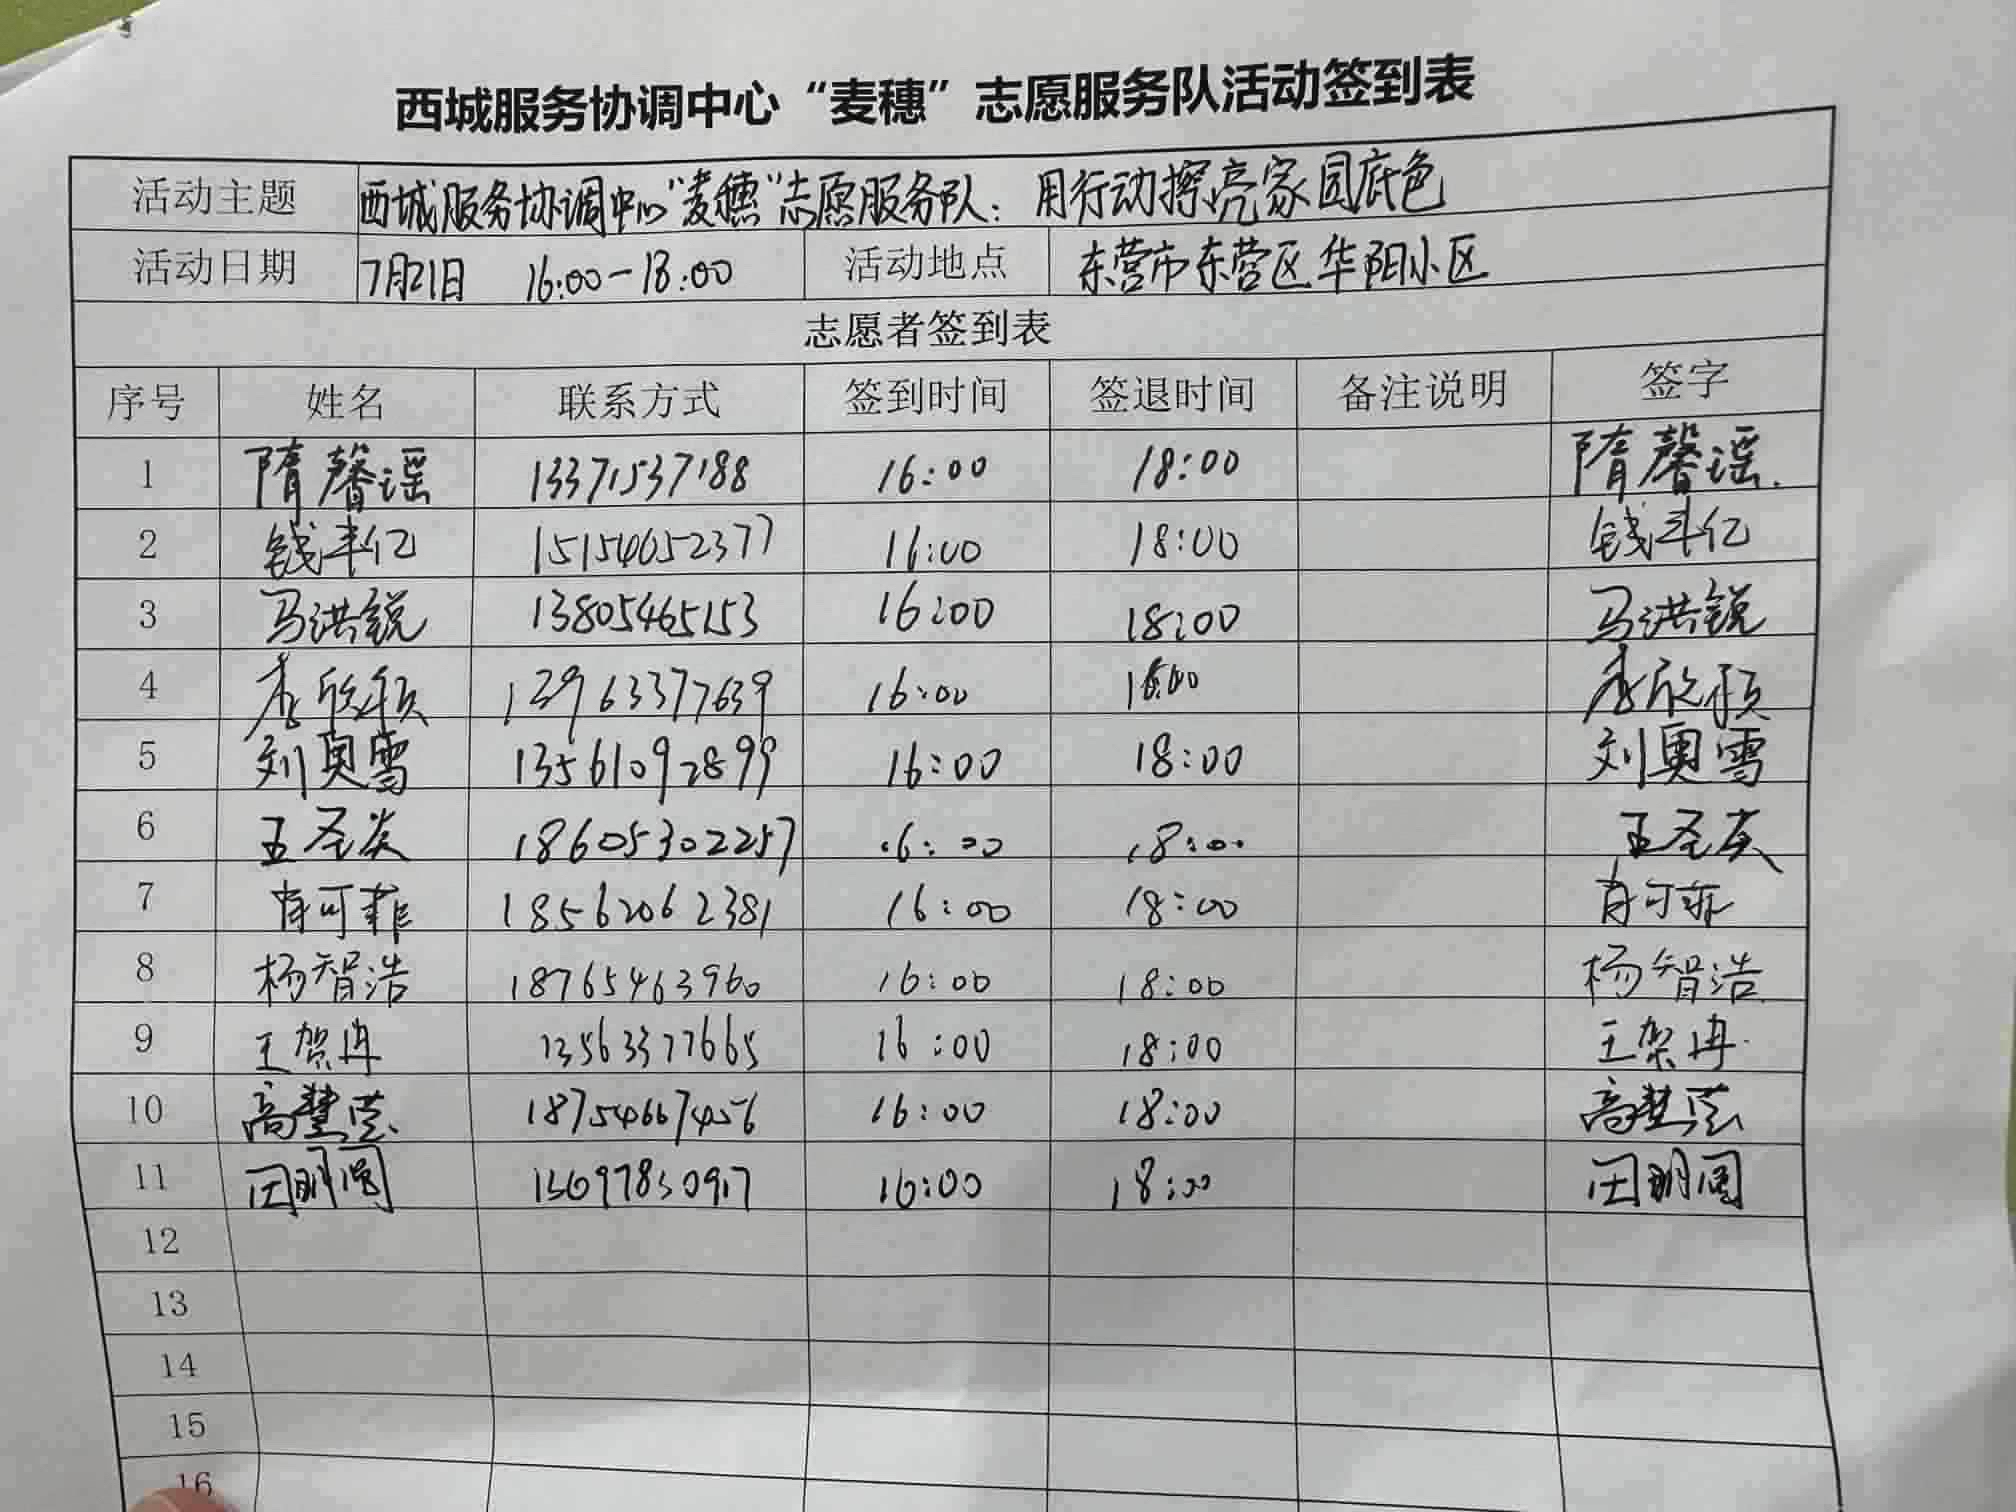 西城服务协调中心“麦穗”志愿服务队活动签到表
活动主题 西城服务协调中心“麦穗”志愿服务队：用行动擦亮家园底色
活动日期 7月21日 16:00-18:00 活动地点 东营市东营区华阳小区
志愿者签到表
序号 姓名 联系方式 签到时间 签退时间 备注说明 签字
1 隋馨谣 13371537188 16:00 18:00 隋馨谣.
2 钱丰亿 15154652377 16:00 18:00 钱丰亿
3 马洪锐 13805465153 16:00 18:00 马洪锐
4 李欣颀 16:00 李欣颀
5 刘奥雪 13561092899 16:00 18:00 刘奥雪
6 王圣炎 18605302257 16:00 18:00 王圣炎
7 肖可菲 18562062381 16:00 18:00 肖可菲
8 杨智浩 18765463960 16:00 18:00 杨智浩
9 王贺冉 13563377665 16:00 18:00 王贺冉
10 高慧芸 18754667456 16:00 18:00 高慧芸
11 田明圆 16:00 18:00 田明圆
12
13
14
15
16